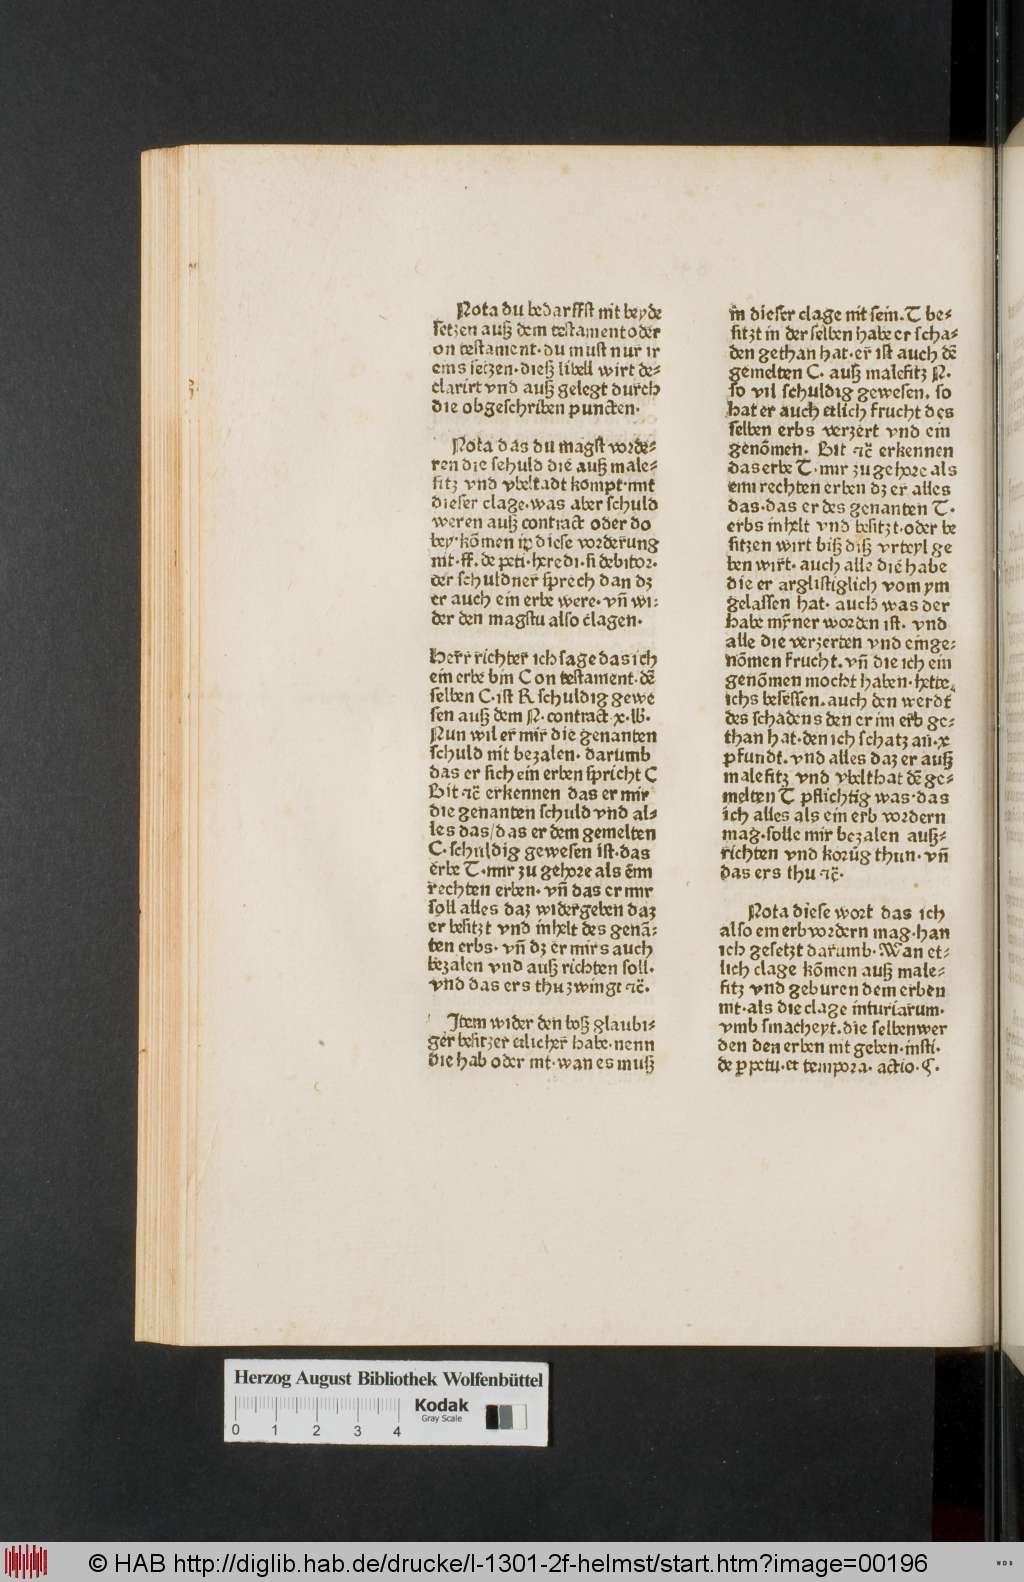 Nota du bedarffst nit beyde
setzen auß dem testament oder
on testament· du must nur ir
eins setzen· dieß libell wirt de⸗
clarirt vnd auß gelegt durch
die obgeschriben puncten·
Nota das du magst vorde⸗
ren die schuld die auß male⸗
fitz vnd vbeltadt kompt·mit
dieser clage·was aber schuld
weren auß contract oder do
bey·kōmen in diese vorderung
nit·ff·de peti·heredi·si debitor·
der schuldner sprech dan dz
er auch ein erbe were· vn̄ wi⸗
der den magstu also clagen·
Herr richter ich sage das ich
ein erbe bin C on testament·dē
selben C·ist R schuldig gewe
sen auß dem N· contract·x·lb·
Nun wil er mir die genanten
schuld nit bezalen· darumb
das er sich ein erben spricht C
Bit ꝛc̄ erkennen das er mir
die genanten schuld vnd al⸗
les das/das er dem gemelten
C·schuldig gewesen ist·das
erbe T·mir zu gehore als eim
rechten erben· vn̄ das er mir
soll alles daz widergeben daz
er besitzt vnd inhelt des genā⸗
ten erbs· vn̄ dz er mirs auch
bezalen vnd auß richten soll·
vnd das ers thu zwingt ꝛc̄·
Item wider den boß glaubi⸗
ger besitzer etlicher habe·nenn
die hab oder nit·wan es muß
in dieser clage nit sein·T be⸗
sitzt in der selben habe er scha⸗
den gethan hat·er ist auch dē
gemelten C· auß malefitz N·
so vil schuldig gewesen· so
hat er auch etlich frucht des
selben erbs verzert vnd ein
genōmen· Bit ꝛc̄ erkennen
das erbe T·mir zu gehore als
eim rechten erben dz er alles
das·das er des genanten T·
erbs inhelt vnd besitzt·oder be
sitzen wirt biß diß vrteyl ge
ben wirt· auch alle die habe
die er arglistiglich vom ym
gelassen hat· auch was der
habe myner worden ist· vnd
alle die verzerten vnd einge⸗
nōmen frucht·vn̄ die ich ein
genōmen mocht haben·hette
ichs besessen·auch den werdt
des schadens den er im erb ge⸗
than hat·den ich schatz an̄·x
pfundt·vnd alles daz er auß
malefitz vnd vbelthat dē ge⸗
melten T pflichtig was·das
ich alles als ein erb vordern
mag·solle mir bezalen auß⸗
richten vnd korūg thun·vn̄
das ers thu ꝛc̄·
Nota diese wort das ich
also ein erb vordern mag·han
ich gesetzt darumb·Wan et⸗
lich clage kōmen auß male⸗
fitz vnd geburen dem erben
nit·als die clage iniuriarum·
vmb smacheyt·die selben wer
den den erben nit geben·insti·
de ꝑpetu·et tempora· actio·§·
Herzog August Bibliothek Wolfenbüttel
Kodak
Gray Scale
0 1 2 3 4
© HAB http://diglib.hab.de/drucke/l-1301-2f-helmst/start.htm?image=00196